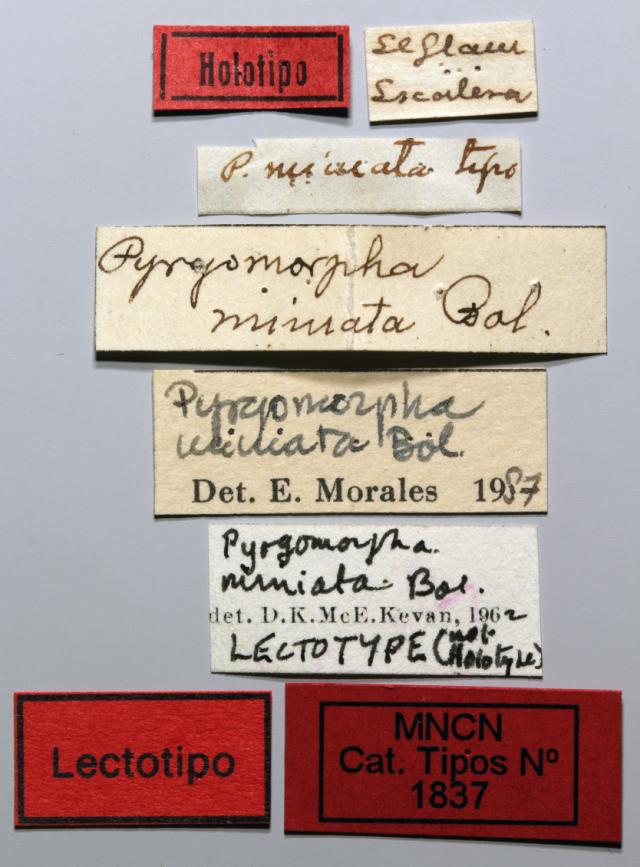 Holotipo
Seglaui
Escalera
P. miniata tipo
Pyrgomorpha
miniata Bol.
Pyrgomorpha
miniata Bol.
Det. E. Morales 1987
Pyrgomorpha.
miniata Bol.
det. D.K.McE.Kevan, 1962
LECTOTYPE (not
Holotype)
Lectotipo
MNCN
Cat. Tipos Nº
1837